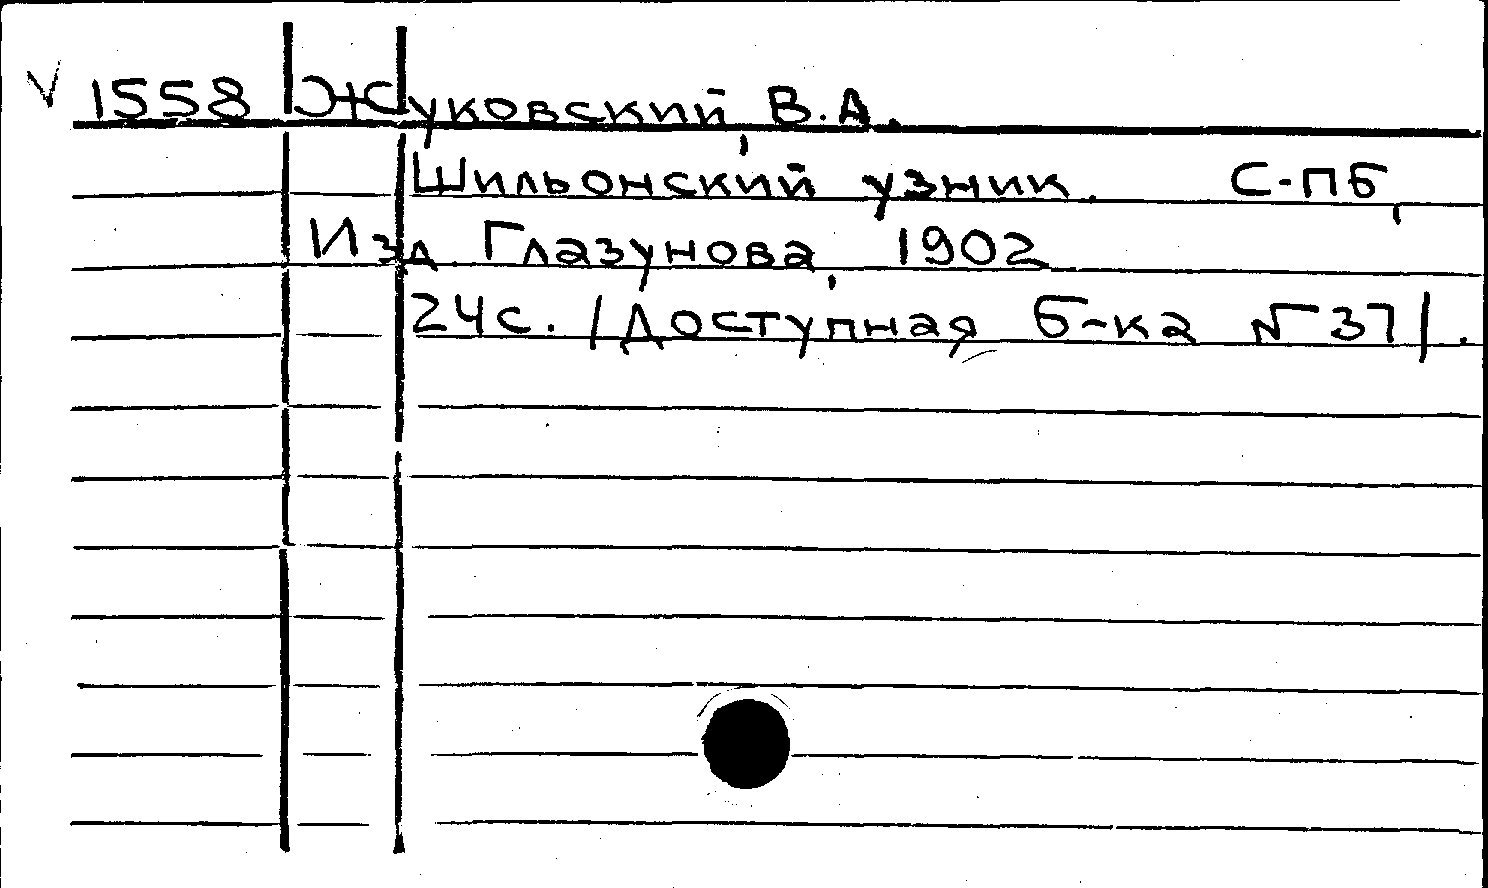 √ 1558 Жуковский, В.А.
Шильонский узник. С-ПБ,
Изд. Глазунова, 1902
24с. /Доступная б-ка № 37/.